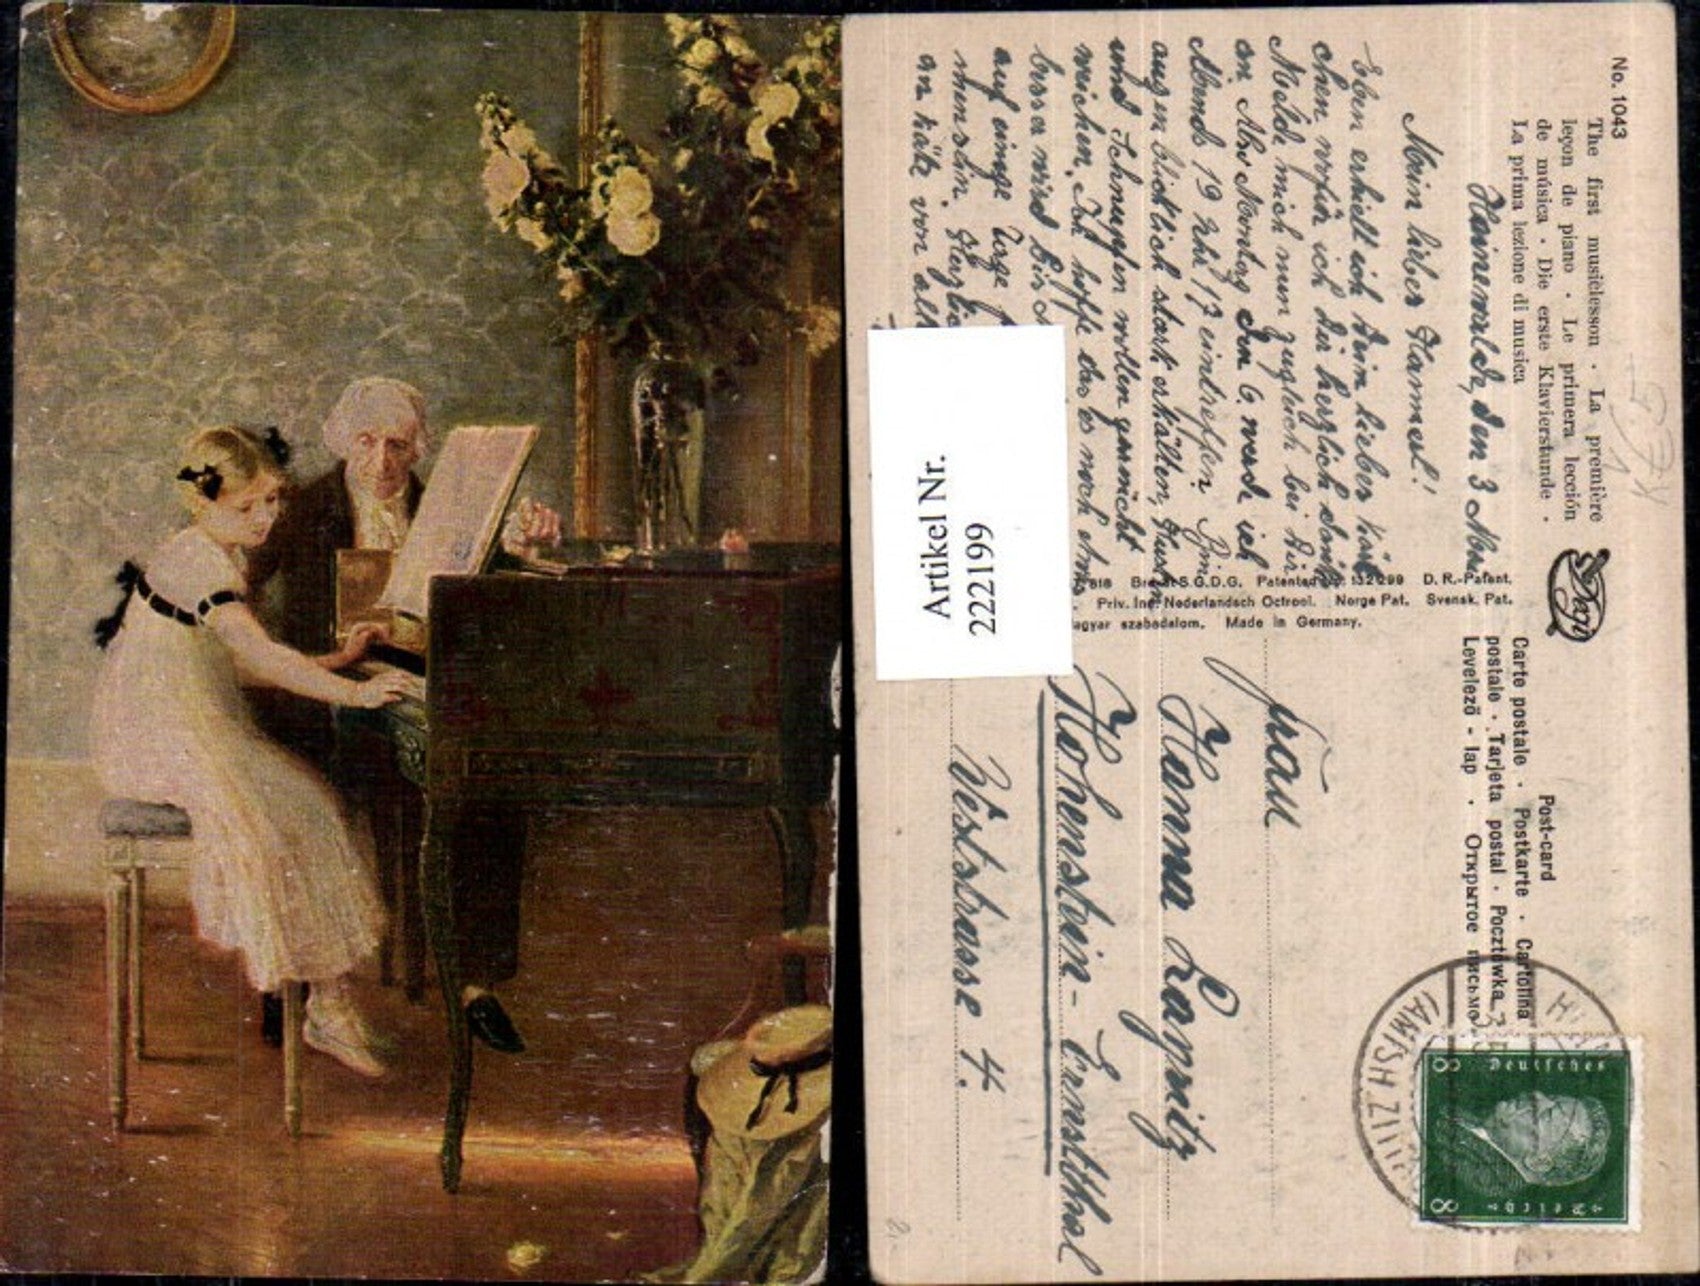 No. 1043
The first musiclesson · La première
leçon de piano · La primera lección
de música · Die erste Klavierstunde ·
La prima lezione di musica
Hainewalde, den 3 März
Mein lieber Hammel!
Eben erhielt ich Dein liebes Kärt
chen wofür ich Dir herzlich danke
Melde mich nun zugleich bei Dir
an Also Montag den 6. werde ich
Abends 19 Uhr 17 eintreffen Bin
augenblicklich stark erkältet, Husten
und Schnupfen wollen garnicht
weichen. Ich hoffe das es noch etwas
besser wird bis
auf einige Tage
Herzlic
an käte von all
Artikel Nr.
222199
818 Brevet S.G.D.G. Patented No. 132299 D. R.-Patent.
Priv. Ind. Nederlandsch Octrooi. Norge Pat. Svensk. Pat.
agyar szabadalom. Made in Germany.
Post-card
Carte postale · Postkarte · Cartolina
postale · Tarjeta postal · Pocztówka
Levelező - lap · Открытое письмо
(AMTSH. ZI
Deutsches
Reich
8 8
Frau
Hanna Lagnitz
Hohenstein-Ernstthal
Weststrasse 4.